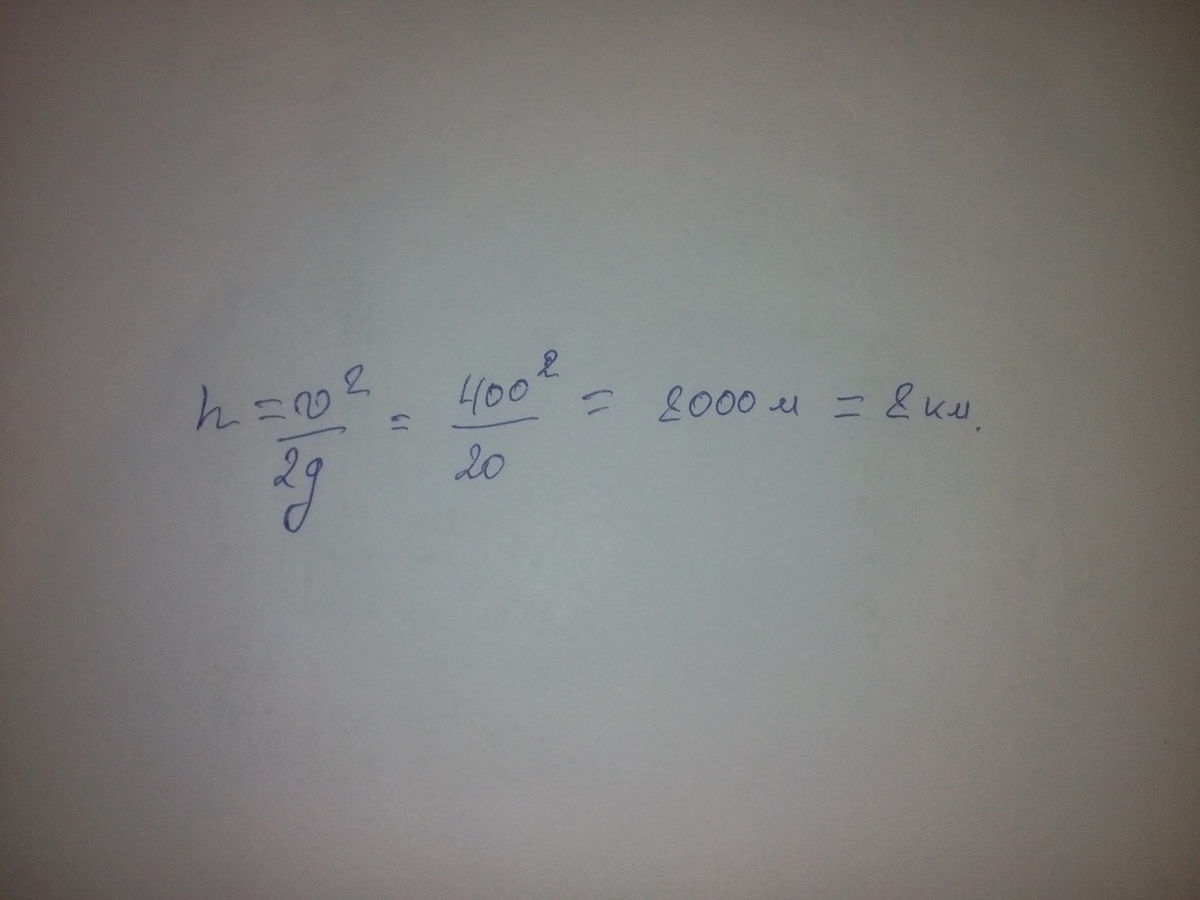 h = v² / 2g = 400² / 20 = 8000 м = 8 км.